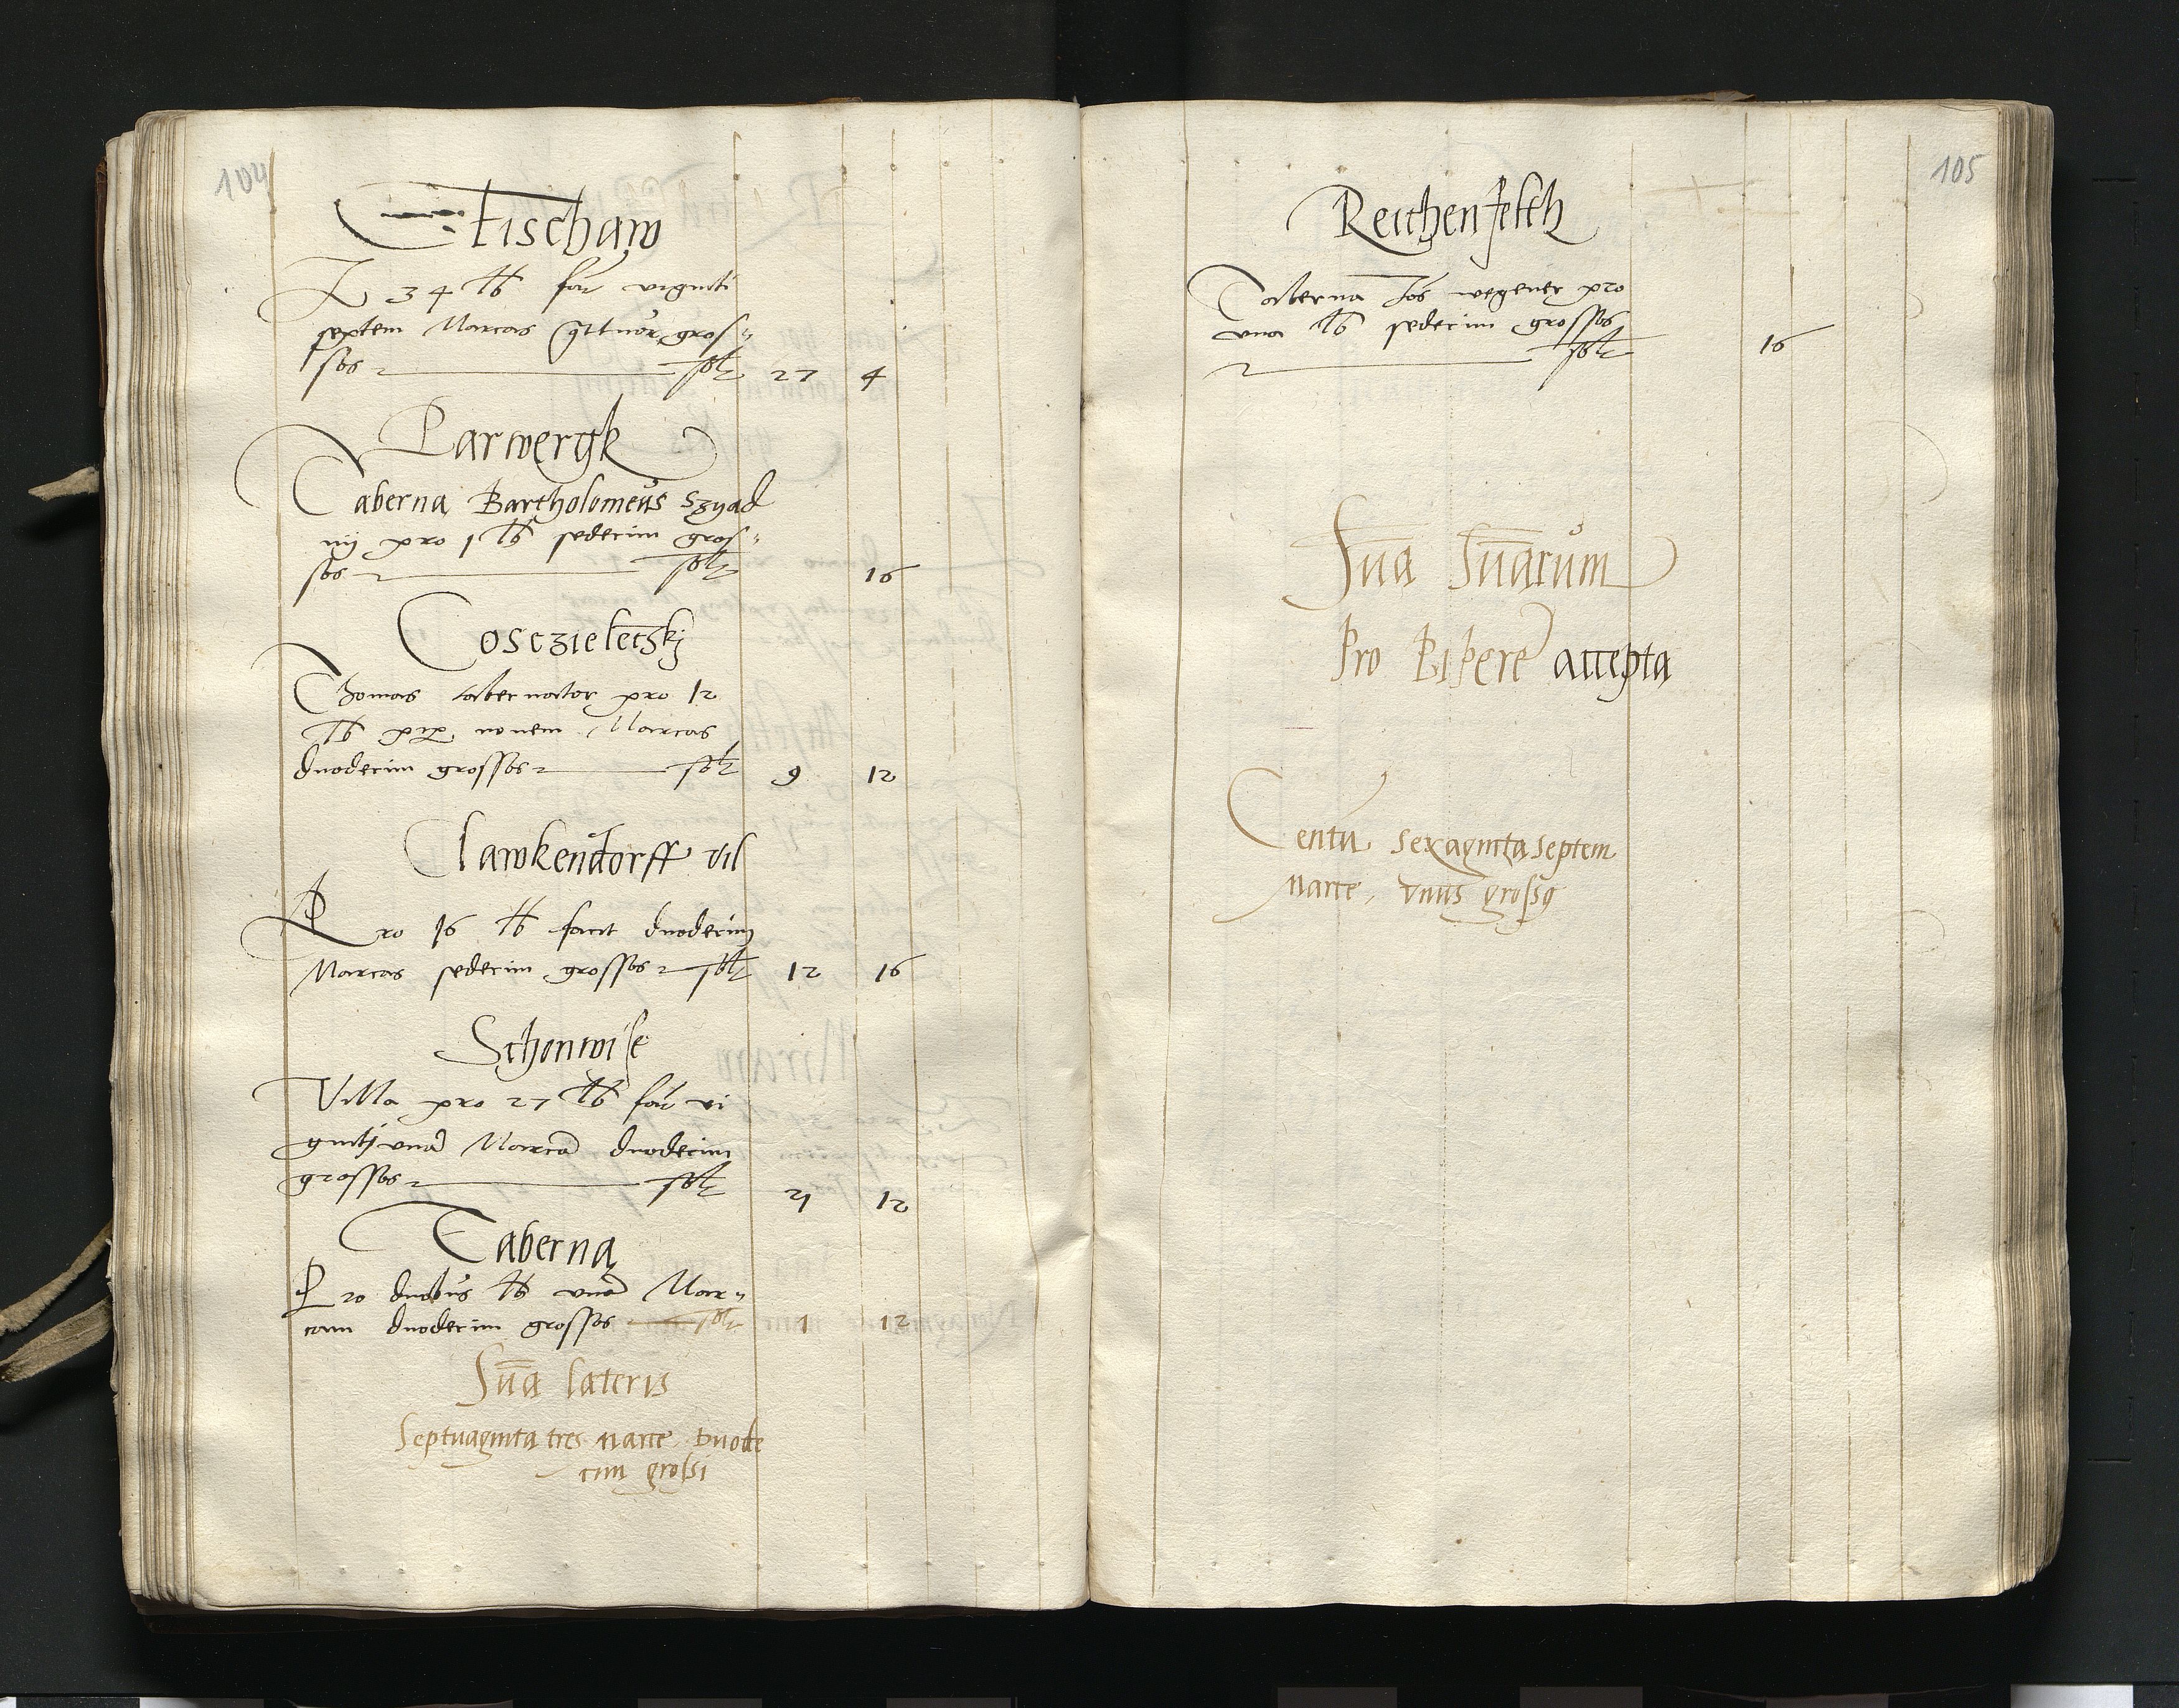 104
Tischaw
Z 34 lb fac viginti
septem Marcas qttuor gros-
sos solt 27 4
Parwergk
Taberna Bartholomeus Szyad
nij pro 1 lb sedecim gros-
sos solt 16
Cosczieletzskj
Thomas tabernator pro 12
lb pip novem Marcas
duodecim grossos solt 9 12
Clawkendorff vil
Pro 16 lb facit duodecim
Marcas sedecim grossos solt 12 16
Schonwise
Villa pro 27 lb fac vi
gintj unā Marcā duodecim
grossos solt 21 12
Taberna
Pro duobus lb unā Mar-
cam duodecim grossos solt 1 12
Sūa lateris
Septuaginta tres marce duode
cim grossi
105
Reichenfelth
Taberna Jos wegener pro
una lb sedecim grossos
solt 16
Sūa Sūarum
Pro Pipere accepta
Centū sexaginta septem
marce, unus grossq